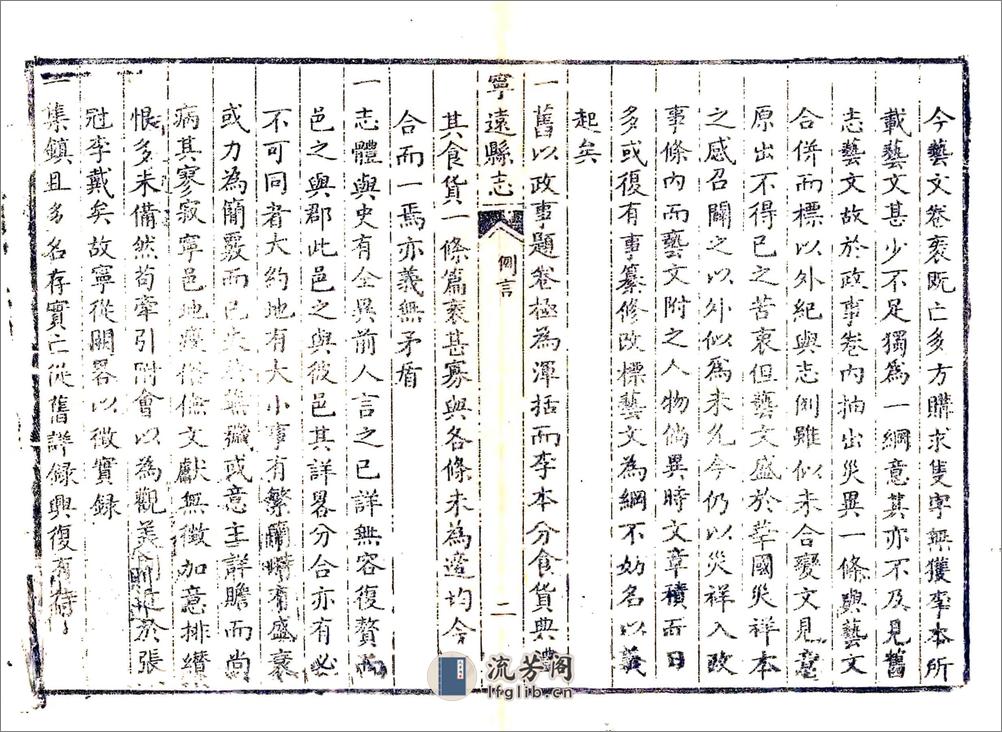 今藝文卷袠既亡多方購求隻字無獲李本所
載藝文甚少不足獨為一綱意其亦不及見舊
志藝文故於政事卷内抽出災異一條與藝文
合併而標以外紀與志例雖似未合變文見意
原出不得已之苦衷但藝文盛於華國災祥本
之感召關之以外似為未允今仍以災祥入政
事條内而藝文附之人物倘異時文章積而日
多或復有事纂修改標藝文為綱不妨名以義
起矣
一舊以政事題卷極為渾括而李本分食貨典禮
寧遠縣志
例言
二
其食貨一條篇袠甚寡與各條未為遼均今
合而一焉亦義無矛盾
一志體與史有全異前人言之已詳無容復贅而
邑之與郡此邑之與彼邑其詳畧分合亦有必
不可同者大約地有大小事有繁簡時有盛衰
或力為簡覈而已失或意主詳贍而尚
病其寥寂寧邑地瘼俗儉文獻無徵加意排纘
恨多未備然苟牽引附會以為觀美則近於張
冠李戴矣故寧從闕畧以徵實録
一集鎮且多名存實亡從舊詳録興復有待
流芳阁
lfglib.cn